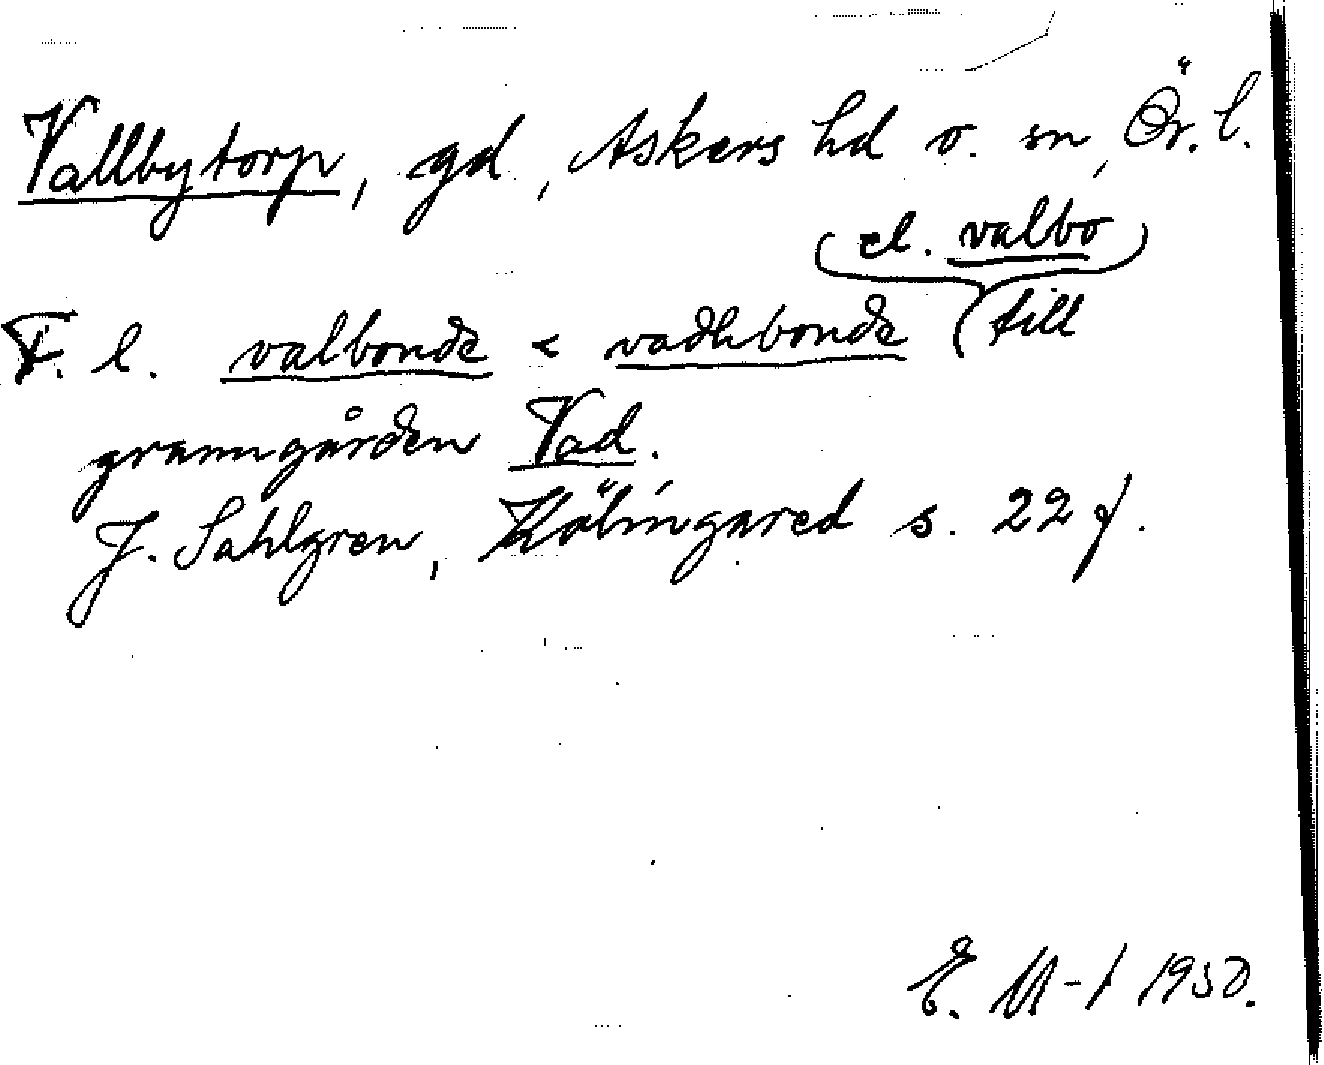 Vallbytorp, gd, Askers hd o. sn, Ör. l.
(el. valbo)
F. l. valbonde < vadhbonde (till
granngården Vad.
J. Sahlgren, Kölingared s. 22 f.
E. M-t 1950.